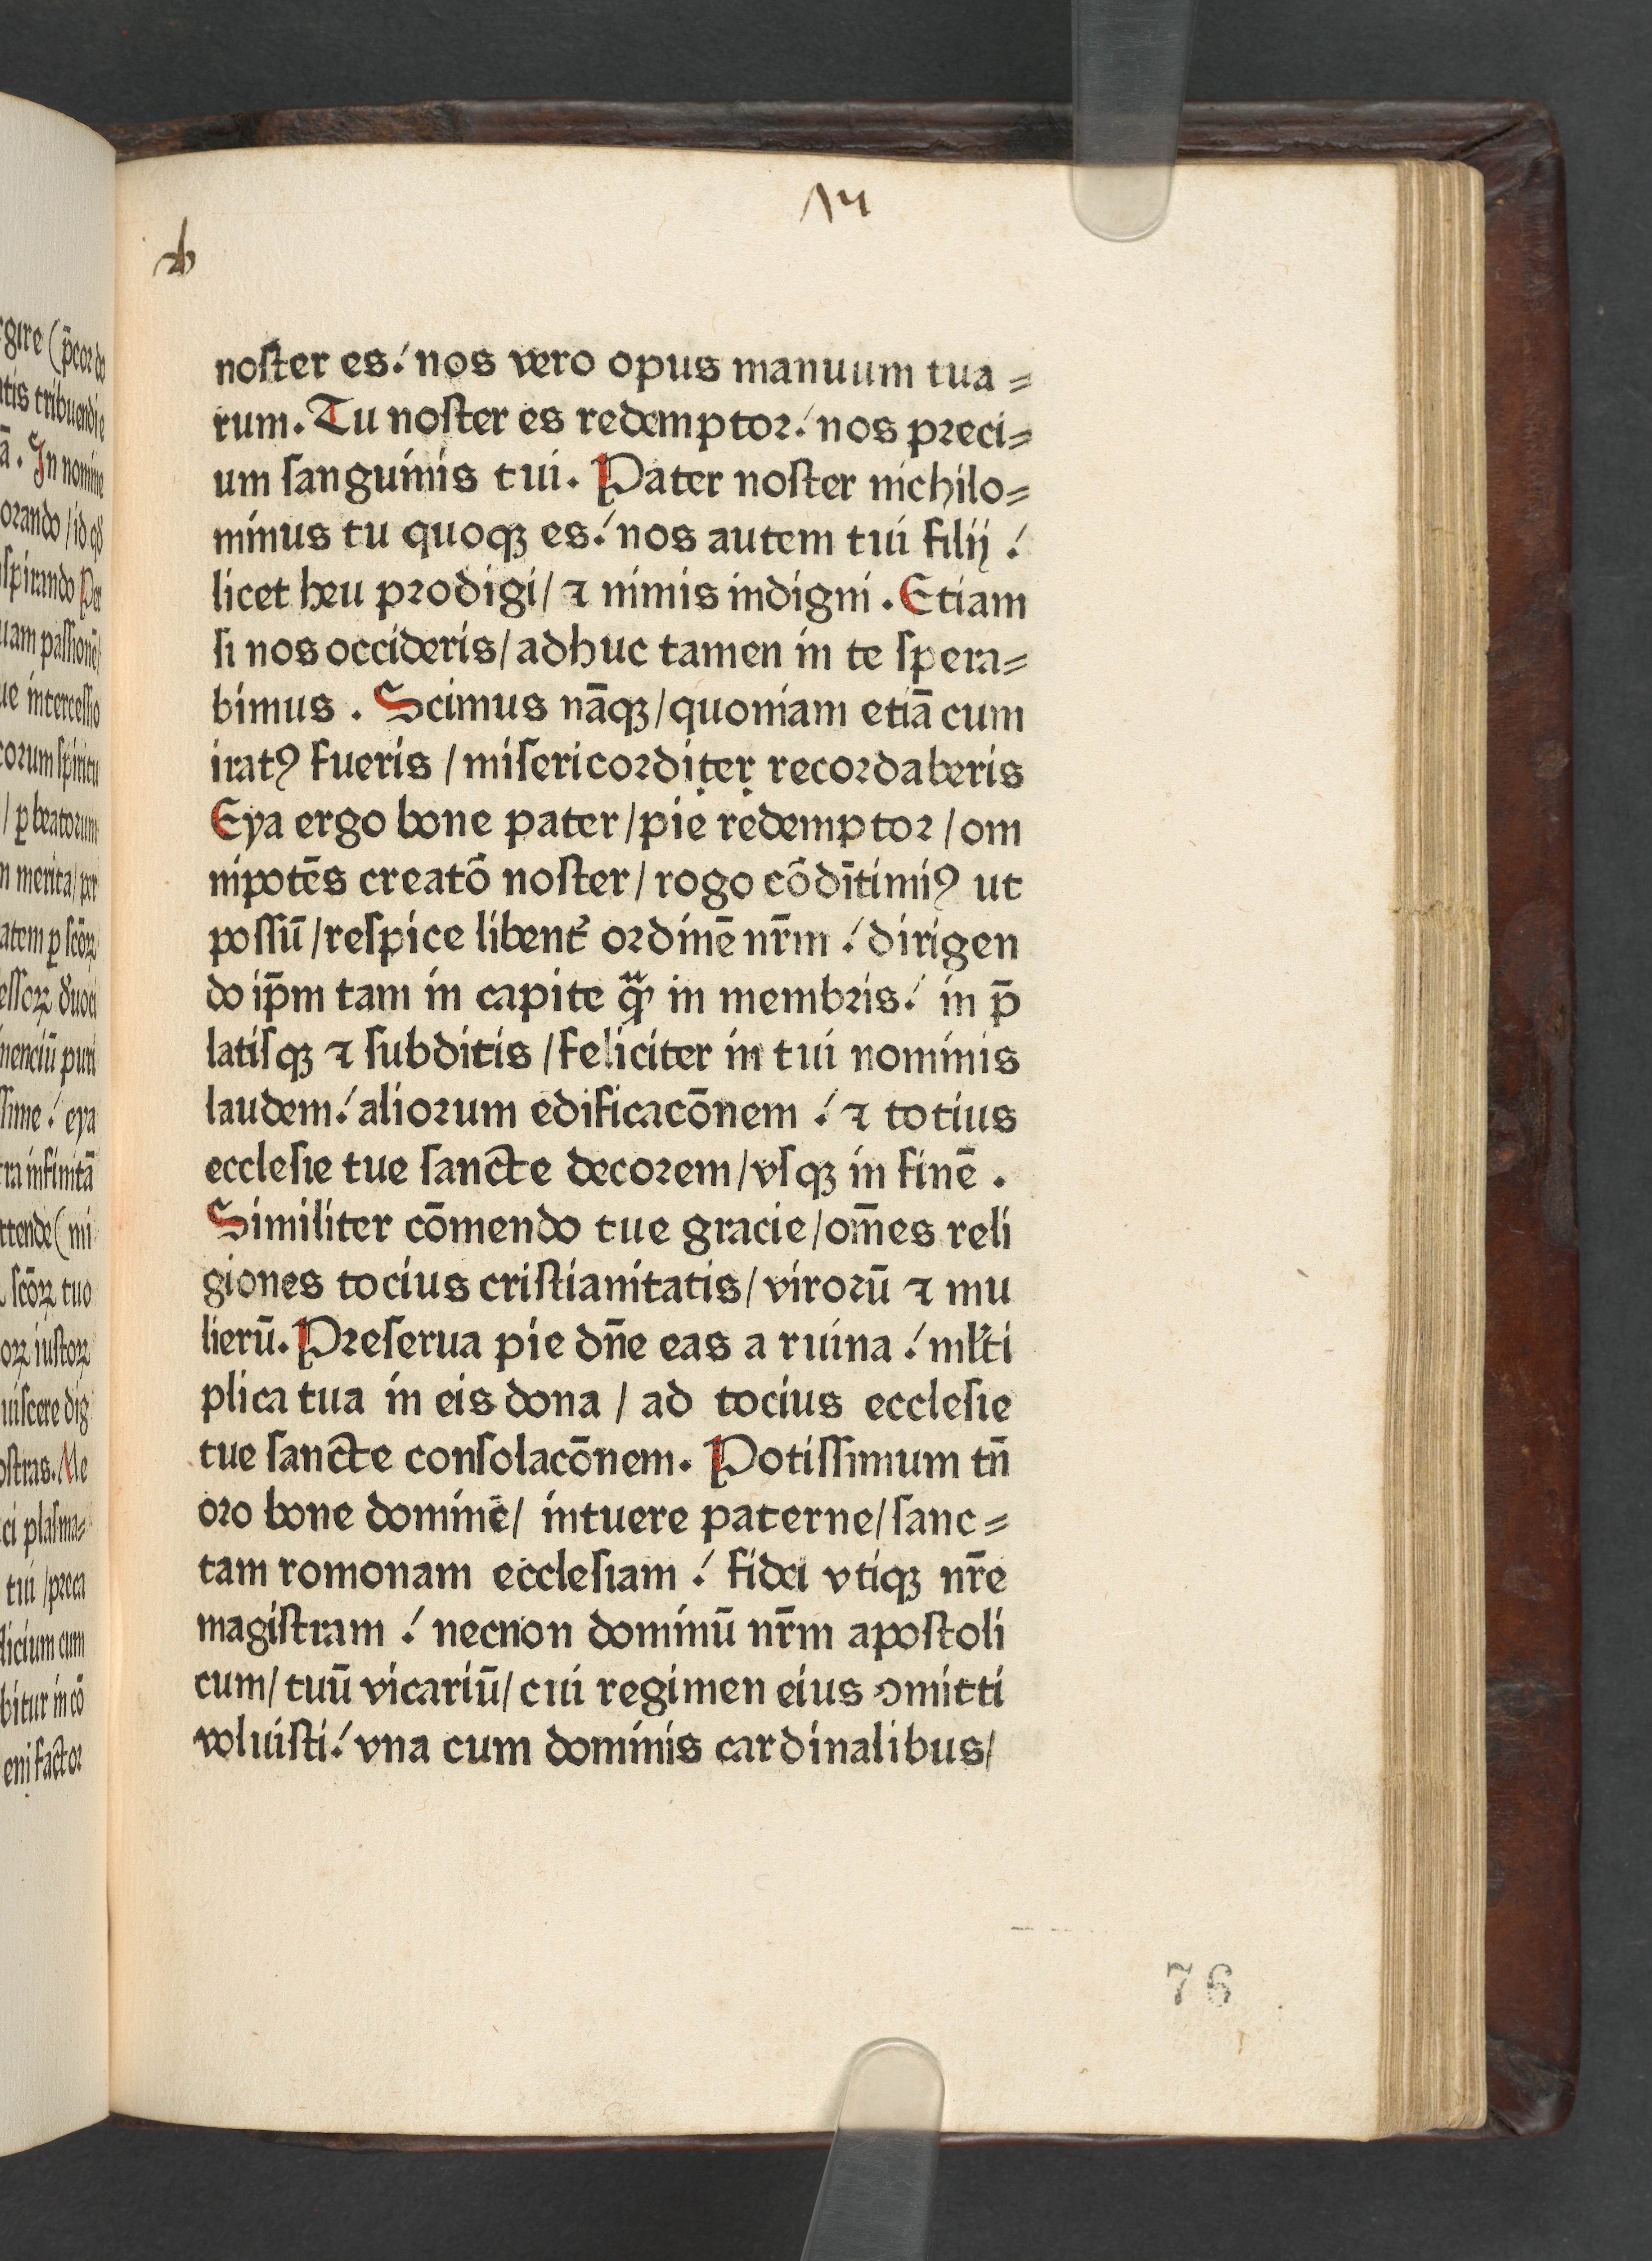 14
noſter es ⁄. nos vero opus manuum tua =
rum. Tu noſter es redemptoꝛ ⁄. nos pꝛeci=
um ſanguinis tui. Pater noſter nichilo=
minus tu quoqꝫ es ⁄. nos autem tui filij ⁄.
licet heu pꝛodigi/ ⁊ nimis indigni. Etiam
ſi nos occideris/ adhuc tamen in te ſpera=
bimus. Scimus nāqꝫ/ quoniam etiā cum
iratꝰ fueris / miſericoꝛditer recoꝛdaberis
Eya ergo bone pater/ pie redemptoꝛ / om
nipotēs creatō noſter/ rogo cōdn̄timiꝰ ut
poſſū /reſpice libent᷑ oꝛdinē nr̄m ⁄. dirigen
do ip̄m tam in capite qᷓꝫ in membꝛis ⁄. in p̄
latiſqꝫ ⁊ ſubditis / feliciter in tui nominis
laudem ⁄. alioꝛum edificacōnem ⁄. ⁊ totius
eccleſie tue ſancte decoꝛem/ vſqꝫ in finē.
Similiter cōmendo tue gracie/ om̄es reli
giones tocius criſtianitatis/ viroꝛū ⁊ mu
lierū. Pꝛeſerua pie dn̄e eas a ruina ⁄. ml̓ti
plica tua in eis dona / ad tocius eccleſie
tue ſancte conſolacōnem. Potiſſimum tn̄
oꝛo bone dominē/ intuere paterne/ ſanc=
tam romonam eccleſiam ⁄. fidei vtiqꝫ nr̄e
magiſtram ⁄. necnon dominū nr̄m apoſtoli
cum/ tuū vicariū/ cui regimen eius ꝯmitti
voluiſti ⁄. vna cum dominis cardinalibus/
76